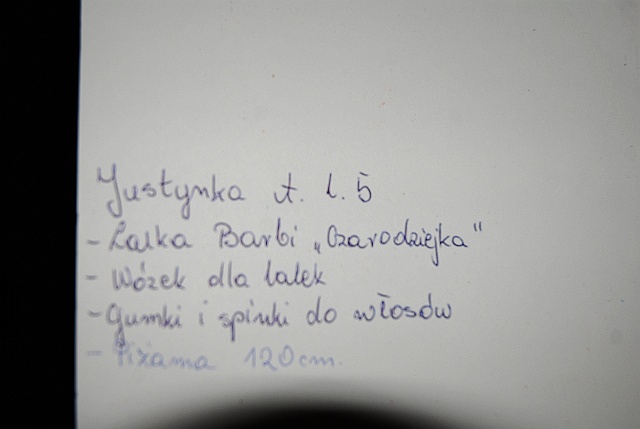 Justynka st. l. 5
- Lalka Barbi „Czarodziejka"
- Wózek dla lalek
- Gumki i spinki do włosów
- Piżama 120 cm.